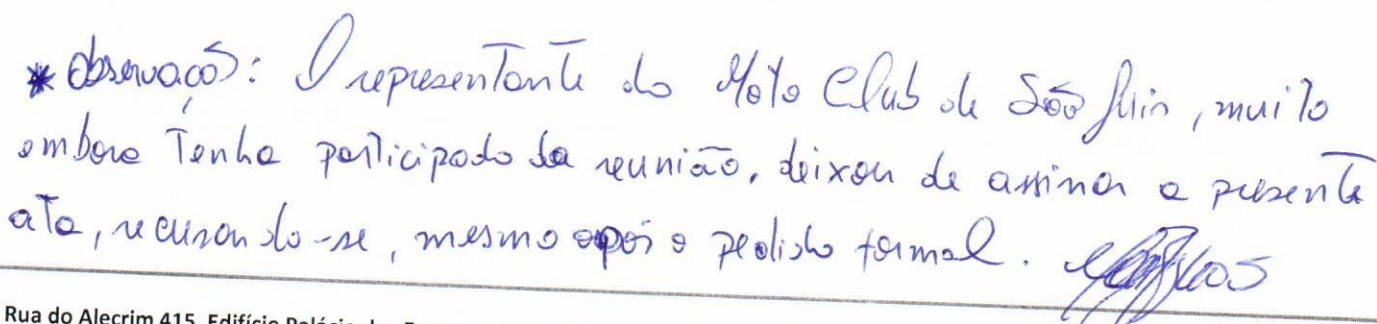 * Observação: O representante do Moto Club de São Luis, muito
embora Tenha participado da reunião, deixou de assinar a presente
ata, recusando-se, mesmo após o pedido formal.
Rua do Alecrim 415, Edifício Palácio